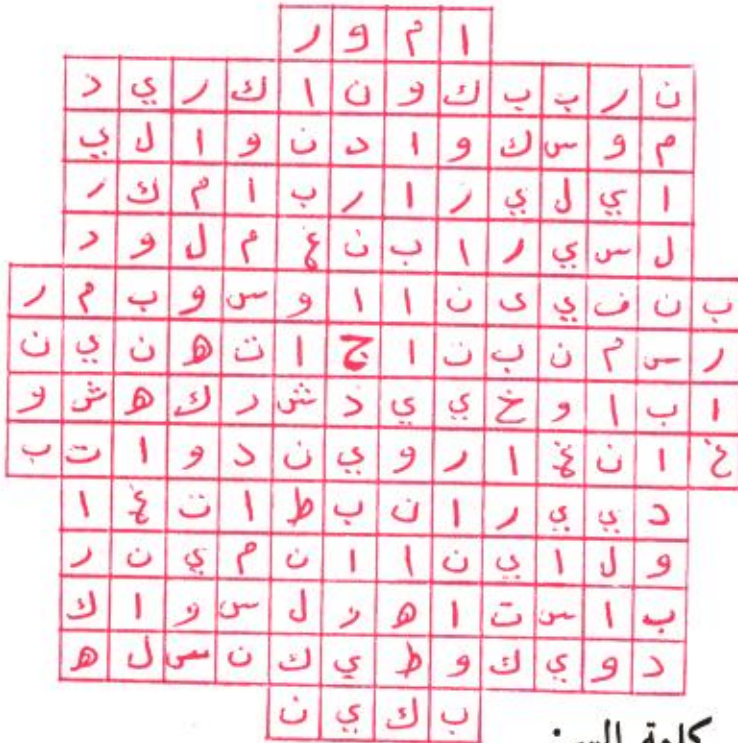 ا م و ر
ن ر ب ب ك و ن ا ك ر ي د
م و س ك و ا د ن و ا ل ي
ا ي ل ي ر ا ر ب ا م ك ر
ل س ي ر ا ب ن غ م ل و د
ب ن ف ي ى ن ا ا و س و ب م ر
ر س م ن ب ن ا ج ا ت ه ن ي ن
ا ب ا و خ ي ي د ش ر ك ه ش و
غ ا ن غ ا ر و ي ن د و ا ت ب
د ي ي ر ا ن ب ط ا ت غ ا
و ل ا ي ن ا ا ن م ي ن ر
ب ا س ت ا ه ر ل س و ا ك
د و ي ك و ط ي ك ن س ل ه
ب ك ي ن